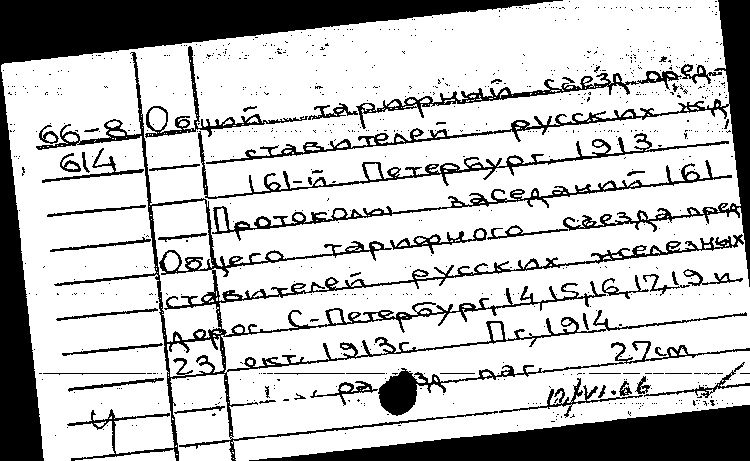 66-8 Общий тарифный съезд пред-
614 ставителей русских жд
161-й. Петербург. 1913.
Протоколы заседаний 161
Общего тарифного съезда пред
ставителей русских железных
дорог. С-Петербург, 14, 15, 16, 17, 19 и
23 окт. 1913г. Пг, 1914.
разд паг. 27см
Ч 12/VI.66